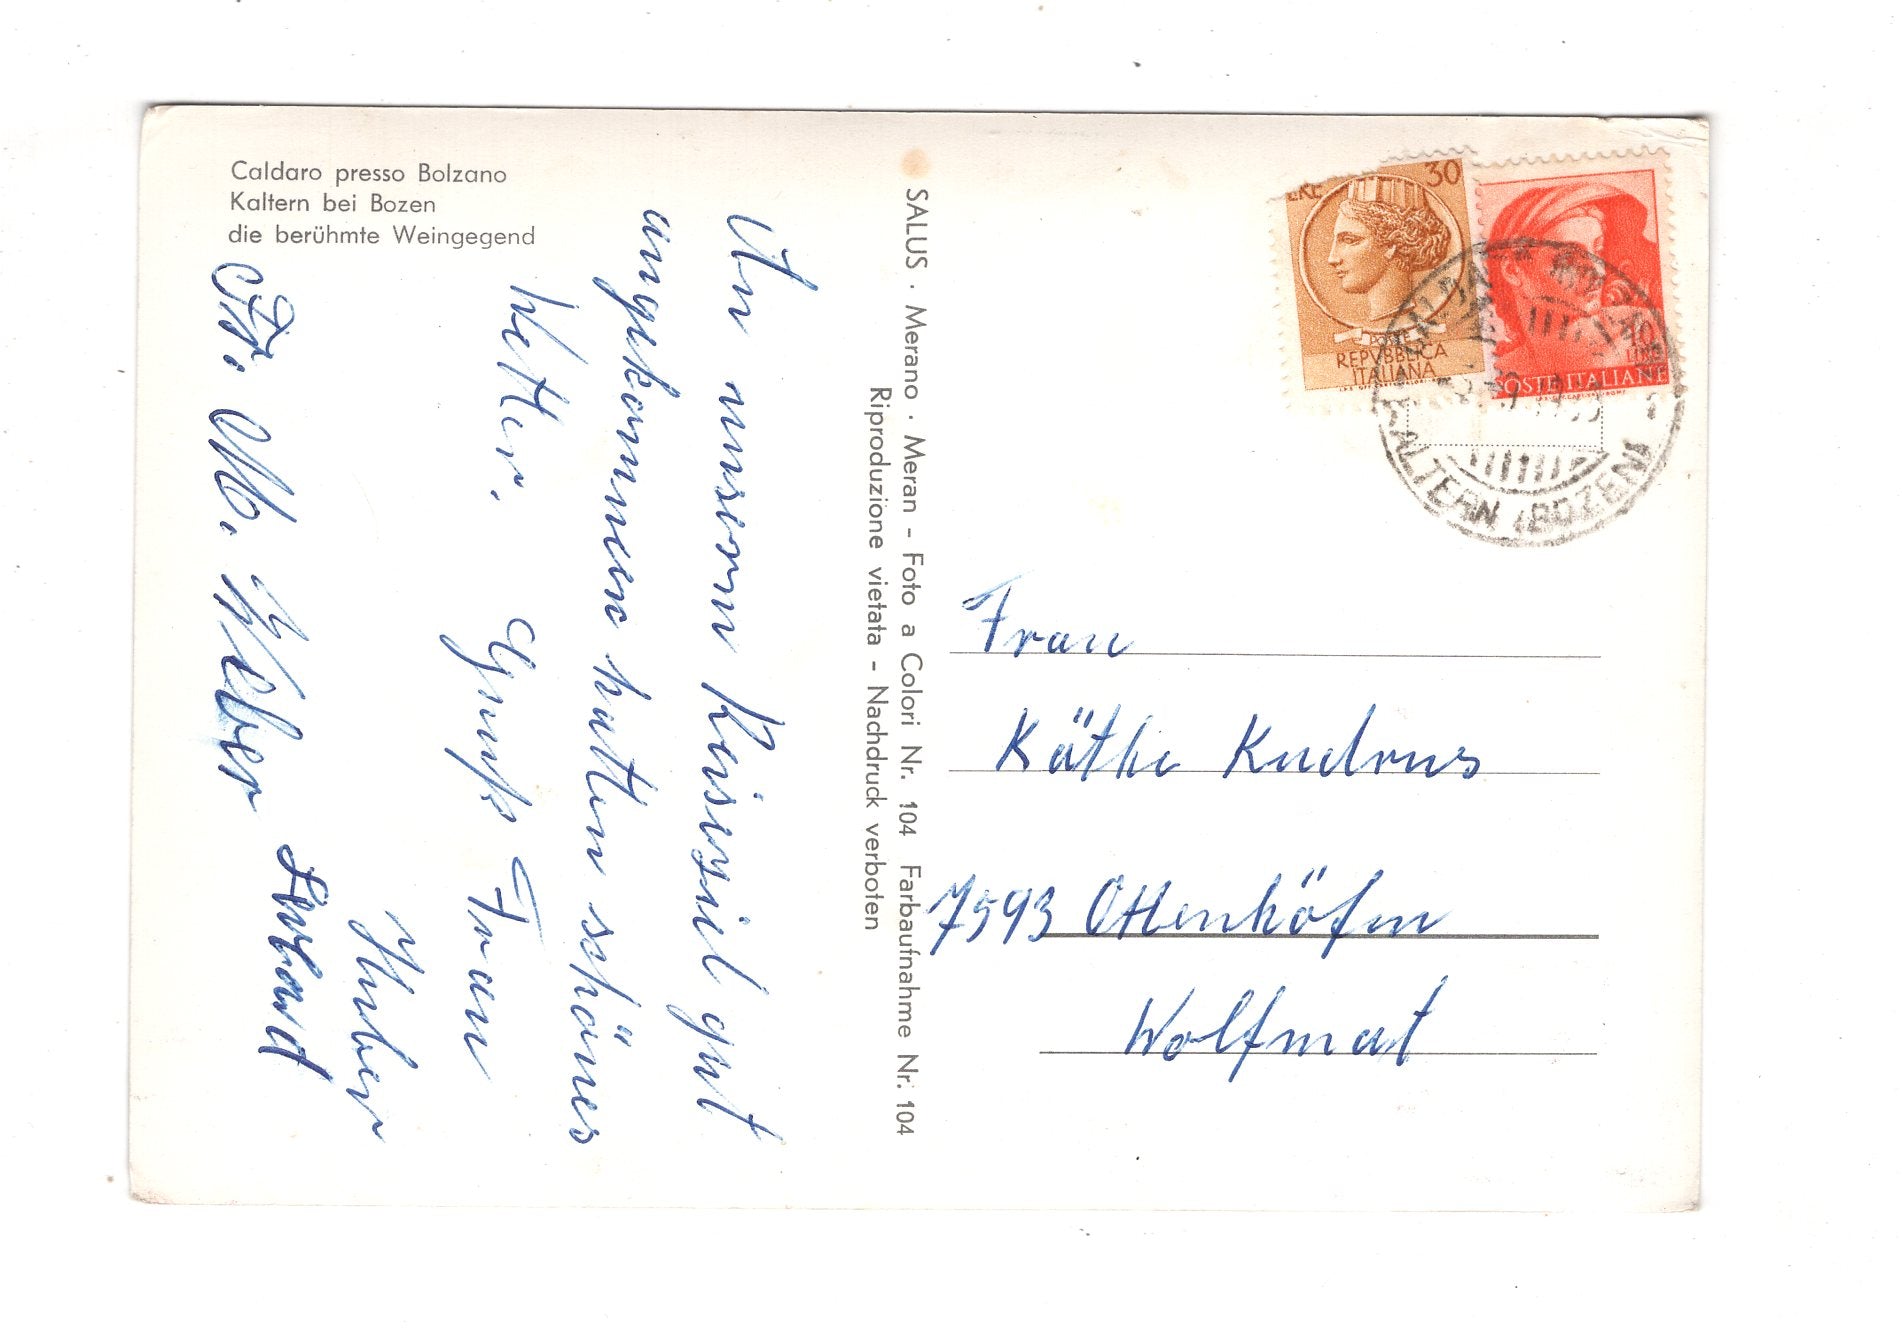 Caldaro presso Bolzano
Kaltern bei Bozen
die berühmte Weingegend
An unserem Reiseziel gut
angekommen hatten schönes
Wetter.
Gruß Frau
Huber
Fr. M. Weber
SALUS · Merano · Meran - Foto a Colori Nr. 104 Farbaufnahme Nr. 104
Riproduzione vietata - Nachdruck verboten
30
POSTE
REPVBBLICA
ITALIANA
POSTE ITALIANE
KALTERN (BOZEN)
Frau
Käthe Kudrus
7593 Ottenhöfen
Wolfmatt